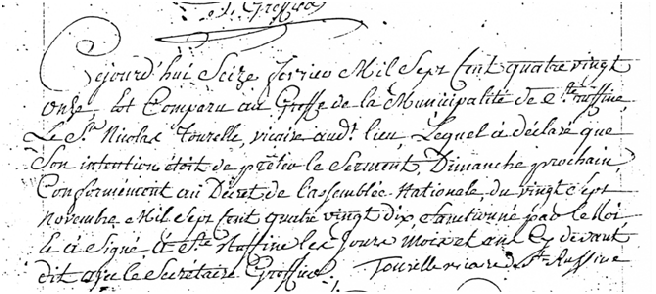 Greffier
Cejourd'hui Seize Fevrier Mil Sept Cent quatre vingt
onze, Est Comparu au Greffe de la Municipalité de Ste Ruffine
Le Sr Nicolas Tourelle, vicaire audt lieu, Lequel a déclaré que
Son intention étoit de prêter le Serment, Dimanche prochain,
Conformément au Décret de l'assemblée Nationale, du vingt Sept
Novembre Mil Sept Cent quatre vingt dix Sanctionné par le Roi
le a Signé à Ste Ruffine les Jours mois et an Cy devant
dit avec le Secrétaire Greffier. Tourelle vicare d Ste Ruffine